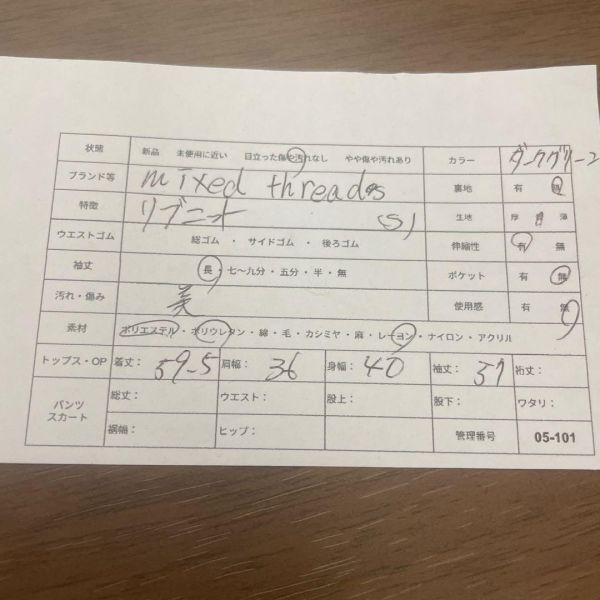 状態 新品 未使用に近い 目立った傷や汚れなし やや傷や汚れあり カラー ダークグリーン
ブランド等 mixed threads 裏地 有 無
特徴 リブニット (S) 生地 厚 普 薄
ウエストゴム 総ゴム ・ サイドゴム ・ 後ろゴム 伸縮性 有 無
袖丈 長 ・ 七〜九分 ・ 五分 ・ 半 ・ 無 ポケット 有 無
汚れ・傷み 美 使用感 有 無
素材 ポリエステル ・ ポリウレタン ・ 綿 ・ 毛 ・ カシミヤ ・ 麻 ・ レーヨン ・ ナイロン ・ アクリル
トップス・OP 着丈: 59.5 肩幅: 36 身幅: 40 袖丈: 57 裄丈:
パンツ スカート 総丈: ウエスト: 股上: 股下: ワタリ:
裾幅: ヒップ: 管理番号 05-101